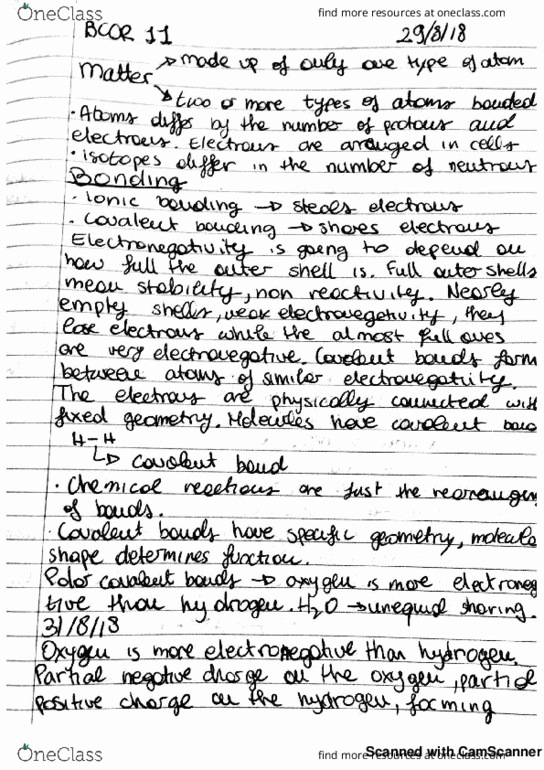 OneClass
find more resources at oneclass.com
BCOR 11 29/8/18
made up of only one type of atom
Matter
two or more types of atoms bonded
· Atoms differ by the number of protons and
electrons. Electrons are arranged in cells
· isotopes differ in the number of neutrons
Bonding
· ionic bonding → steals electrons
· covalent bonding → shares electrons
Electronegativity is going to depend on
how full the outer shell is. Full outer shells
mean stability, non reactivity. Nearly
empty shells, weak electronegativity, they
lose electrons while the almost full ones
are very electronegative. Covalent bonds form
between atoms of similar electronegativity.
The electrons are physically connected with
fixed geometry. Molecules have covalent bond
H-H
↳ covalent bond
· Chemical reactions are just the rearrangem
of bonds.
· Covalent bonds have specific geometry, molecule
shape determines function.
Polar covalent bonds → oxygen is more electroneg
tive than hydrogen. H2O → unequal sharing.
31/8/18
Oxygen is more electronegative than hydrogen.
Partial negative charge on the oxygen, partial
positive charge on the hydrogen, forming
OneClass
find more resources at oneclass.com
Scanned with CamScanner